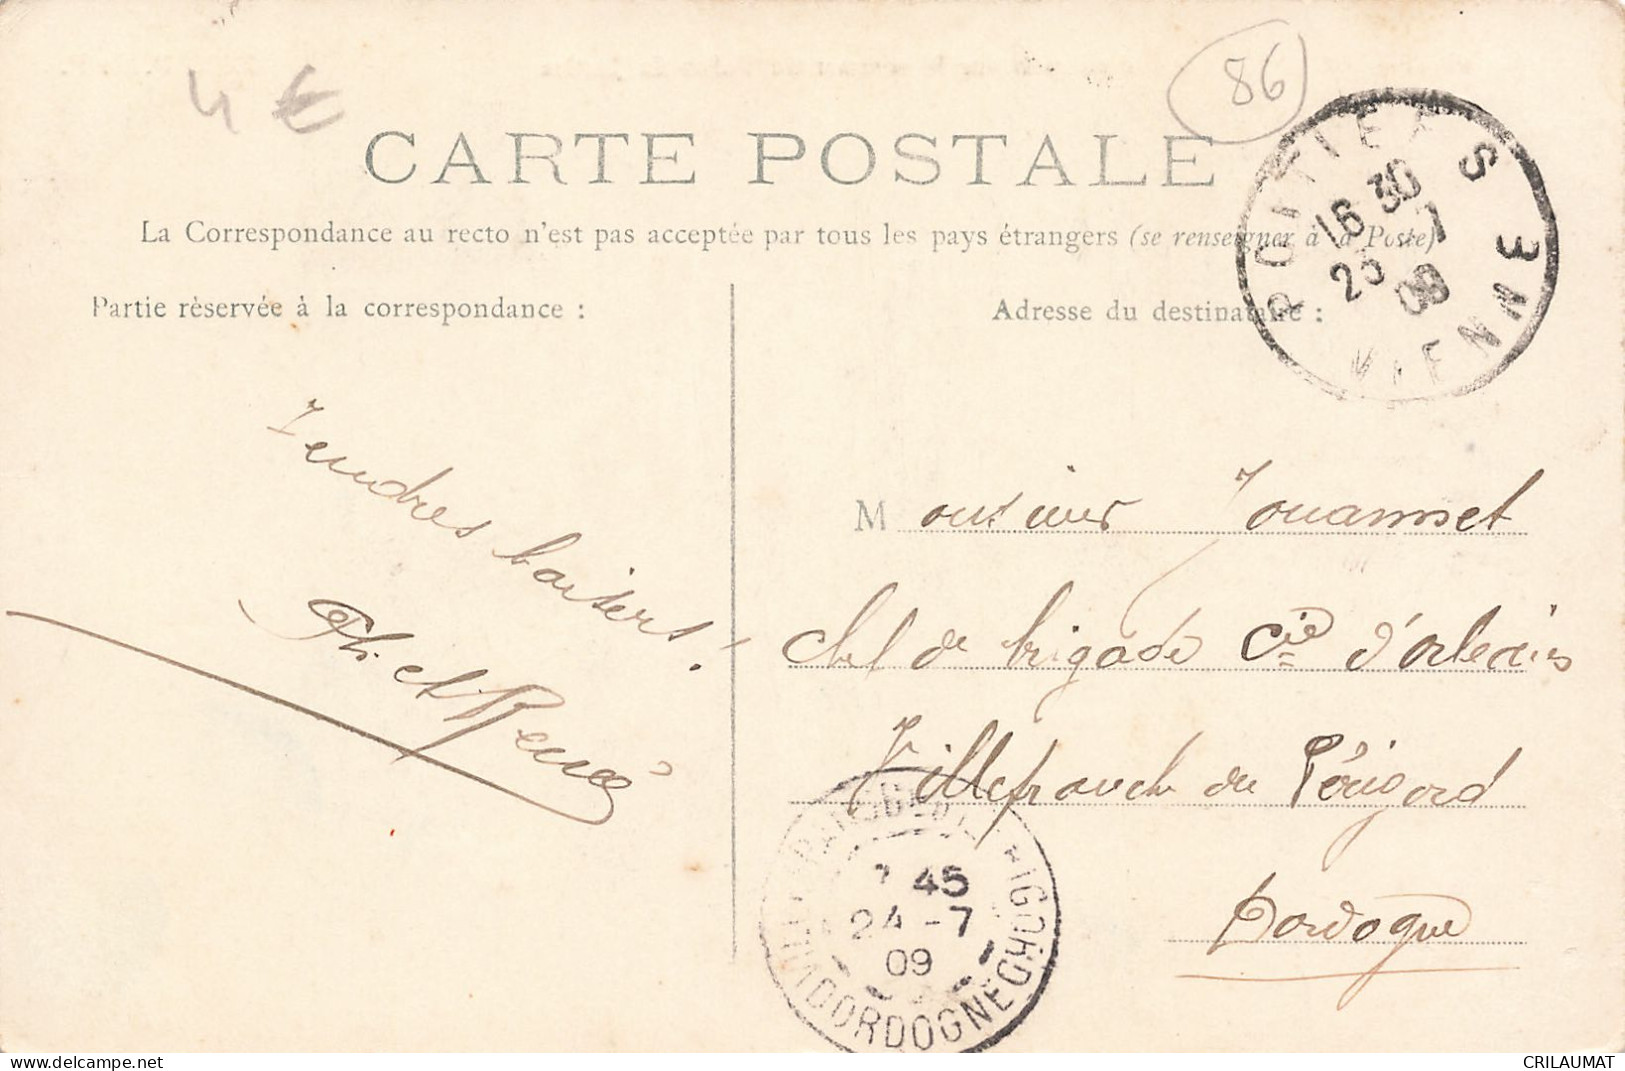 4 €
86
CARTE POSTALE
La Correspondance au recto n'est pas acceptée par tous les pays étrangers (se renseigner à la Poste)
Partie rèservée à la correspondance :
Adresse du destinataire :
POITIERS
16 30
23 -7
09
VIENNE
Tendres baisers !
et Renée
Monsieur Jouannet
chef de brigade Cie d'orléans
Villefranche du Périgord
Dordogne
45
24 -7
09
DORDOGNE
CRILAUMAT